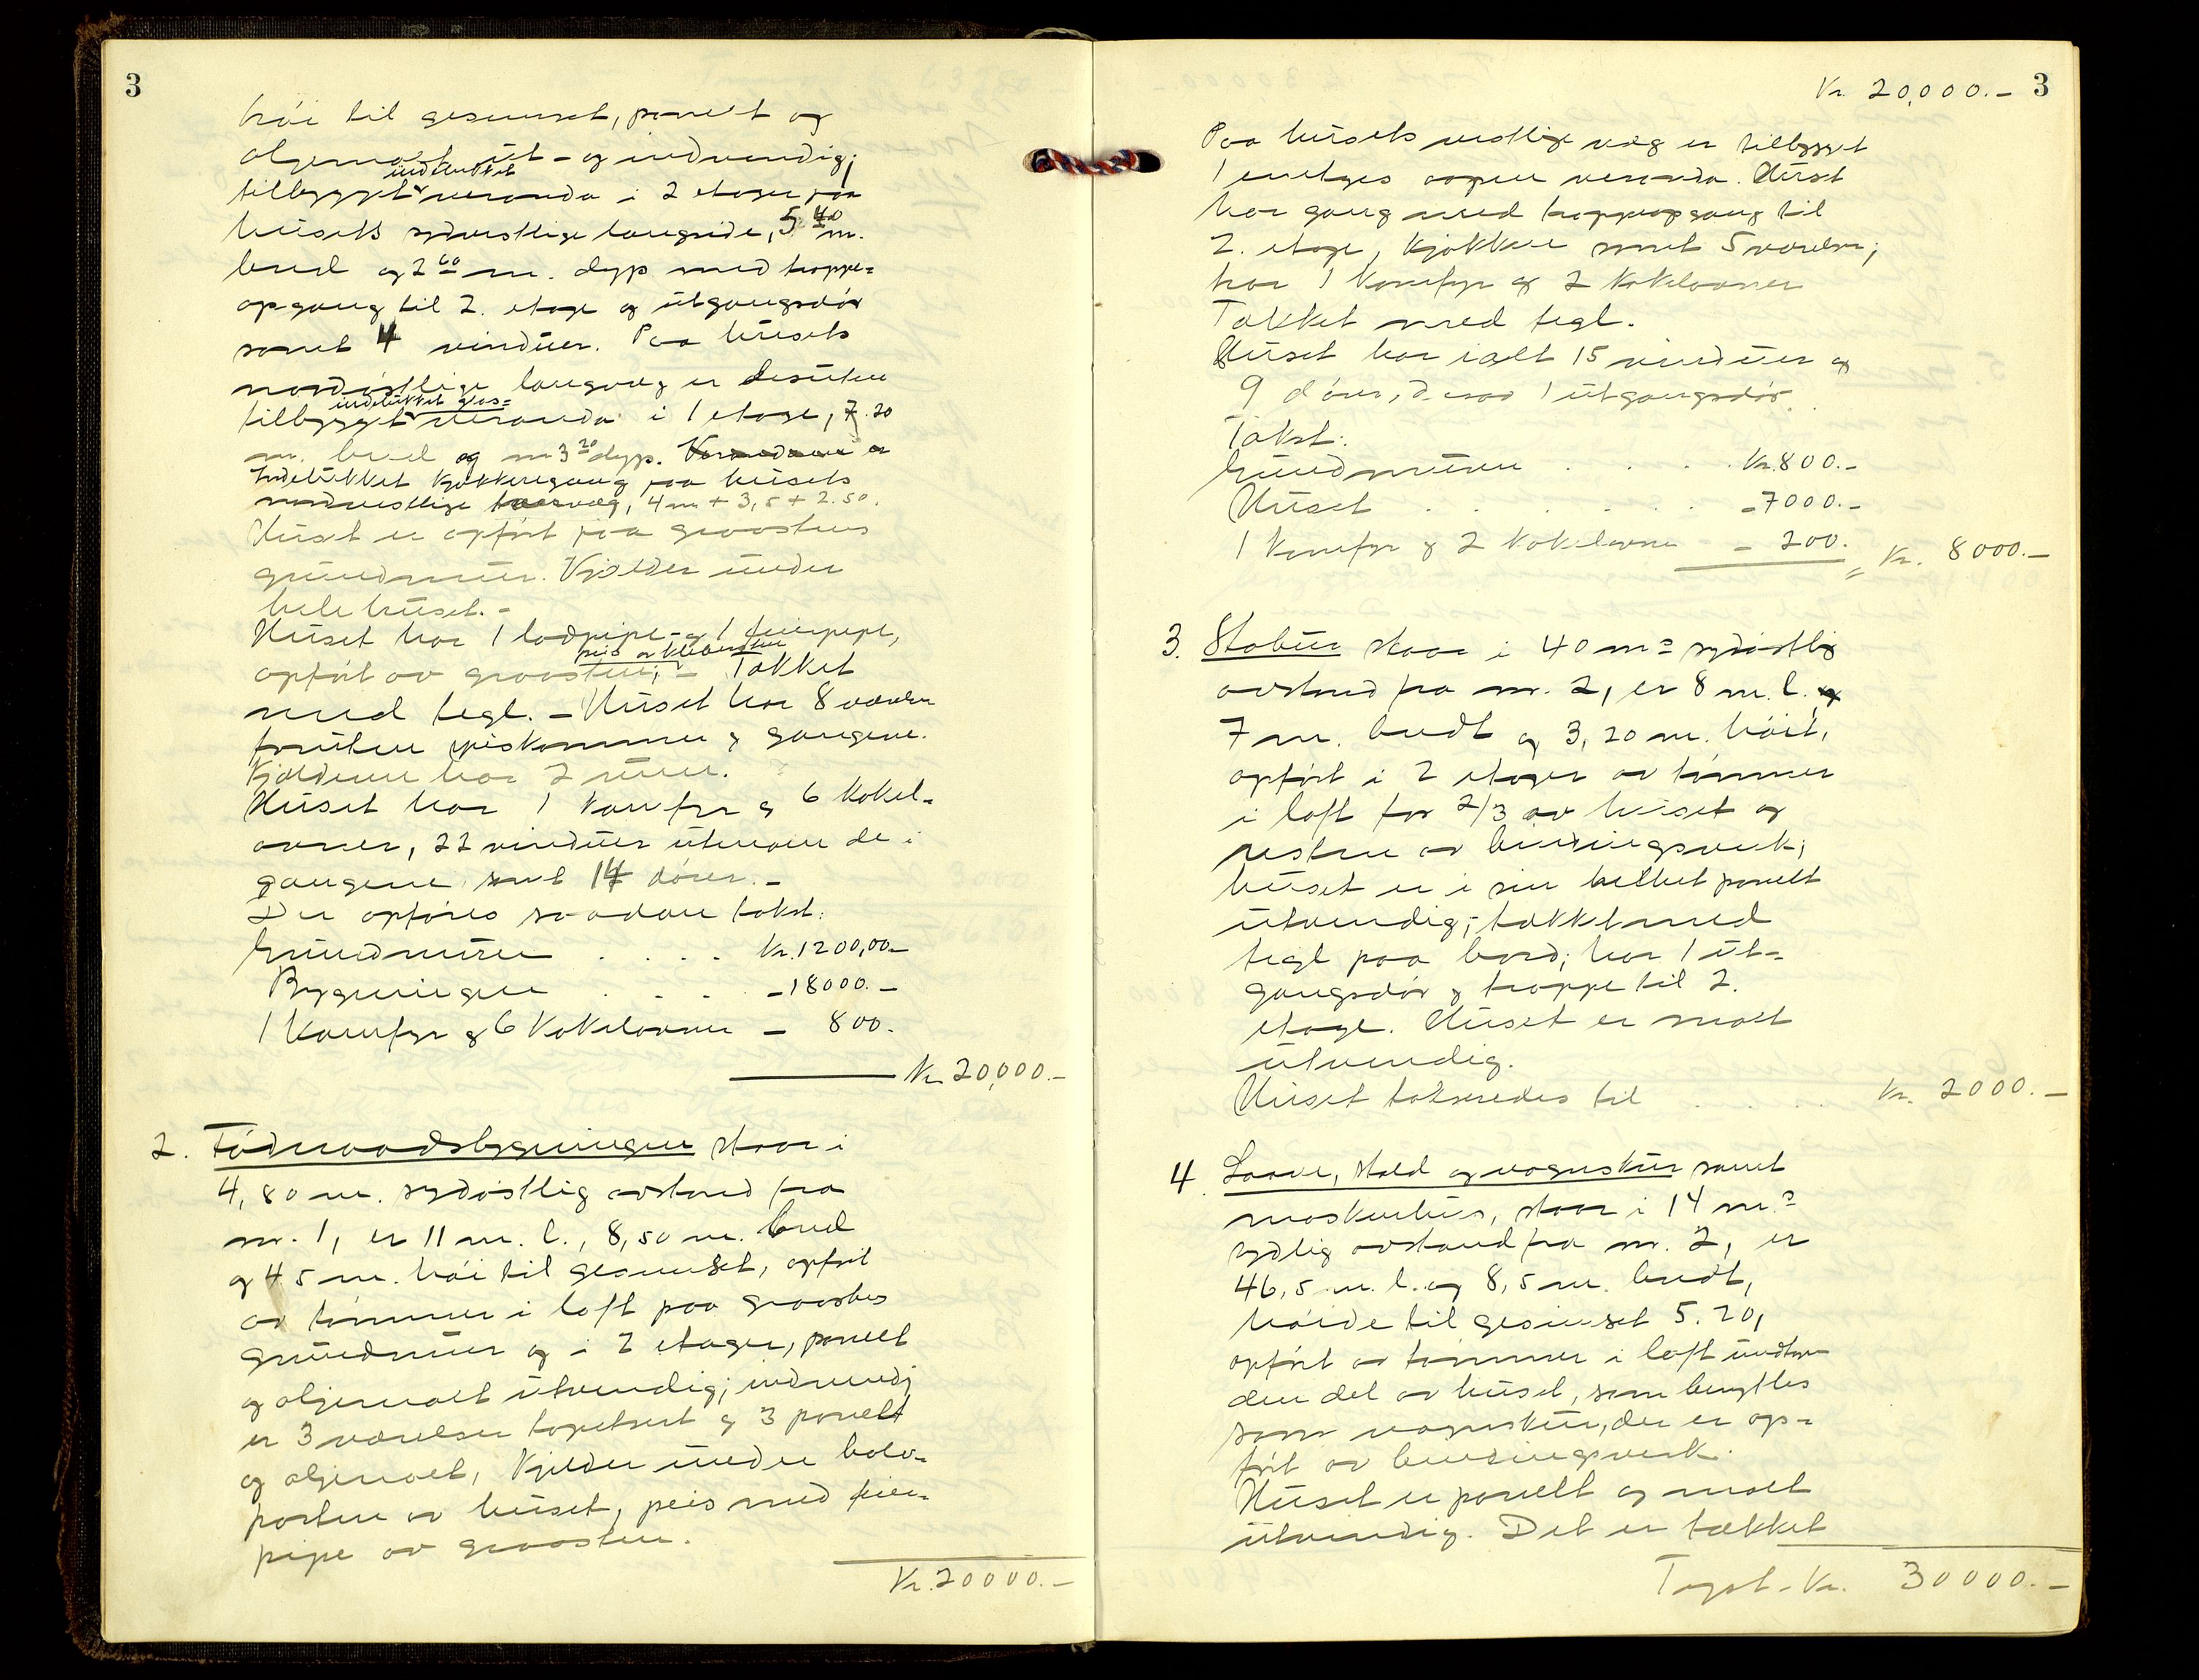 3
høi til gesimset, panelt og
oljemalt ut- og indvendig;
indelukket
tilbygget veranda i 2 etager paa
husets sydvestlige langside, 5 40 m.
bred og 2 60 m. dyp med trappe=
opgang til 2. etage og utgangsdør
samt 4 vinduer. Paa husets
nordøstlige langvæg er desuten
indelukket glas=
tilbygget veranda i 1 etage, 7.20
m. bred og m 3 20 dyp. Verandaen er
Indelukket kjøkkengang paa husets
nordvestlige tværvæg, 4 m + 3,5 + 2.50.
Huset er opført paa graastens
grundmur. Kjelder under
hele huset.-
Huset har 1 ladpipe- og 1 feierpipe,
peis av kleberstein
opført av graasten; - Tækket
med tegl. - Huset har 8 værelser
foruten spiskammer & gangene.
Kjælderen har 2 rum.
Huset har 1 komfyr & 6 kakel-
ovner, 22 vinduer utenom de i
gangene samt 14 dører. -
Der opføres saadan takst:
Grundmuren . . . . Kr. 1200,00-
Bygningen . . . - 18000. -
1 Komfyr & 6 Kakelovner - 800.
Kr 20,000.-
2. Føderaadsbygningen staar i
4,80 m. sydøstlig avstand fra
nr. 1, er 11 m. l., 8,50 m. bred
og 4 5 m. høi til gesimset, opført
av tømmer i laft paa graastens
grundmur og i 2 etager, panelt
og oljemalt utvendig; indvendig
er 3 værelser tapetsert & 3 panelt
og oljemalt, Kjelder under halv-
parten av huset, peis med feier-
pipe av graasten.
Kr. 20000.-
Kr. 20,000.- 3
Paa husets vestlige væg er tilbygget
1 enetages aapen veranda. Huset
har gang med trappeopgang til
2. etage, kjøkken samt 5 værelser;
har 1 komfyr & 2 kakelovner
Tækket med tegl.
Huset har ialt 15 vinduer og
9 dører, derav 1 utgangsdør.
Takst:
Grundmuren . . . . Kr. 800.-
Huset . . . . . . . - 7000.-
1 Komfyr & 2 Kakelovne - - 200. = Kr. 8000.-
3. Stabur staar i 40 m= sydøstlig
avstand fra nr. 2, er 8 m. l. og
7 m. bredt og 3,20 m. høit,
opført i 2 etager av tømmer
i laft for 2/3 av huset og
resten av bindingsverk;
huset er i sin helhet panelt
utvendig; tækket med
tegl paa bord; har 1 ut-
gangsdør & trappe til 2.
etage. Huset er malt
utvendig.
Huset takseredes til . . . . Kr. 2000.-
4. Laave, stald og vognskur samt
maskinhus, staar i 14 m.=
sydlig avstand fra nr. 2, er
46,5 m. l. og 8,5 m. bredt,
høide til gesimset 5.20,
opført av tømmer i laft undtagen
den del av huset, som benyttes
som vognskur, der er op-
ført av bindingsverk.
Huset er panelt og malt
utvendig. Det er tækket
Trpst. Kr. 30000.-